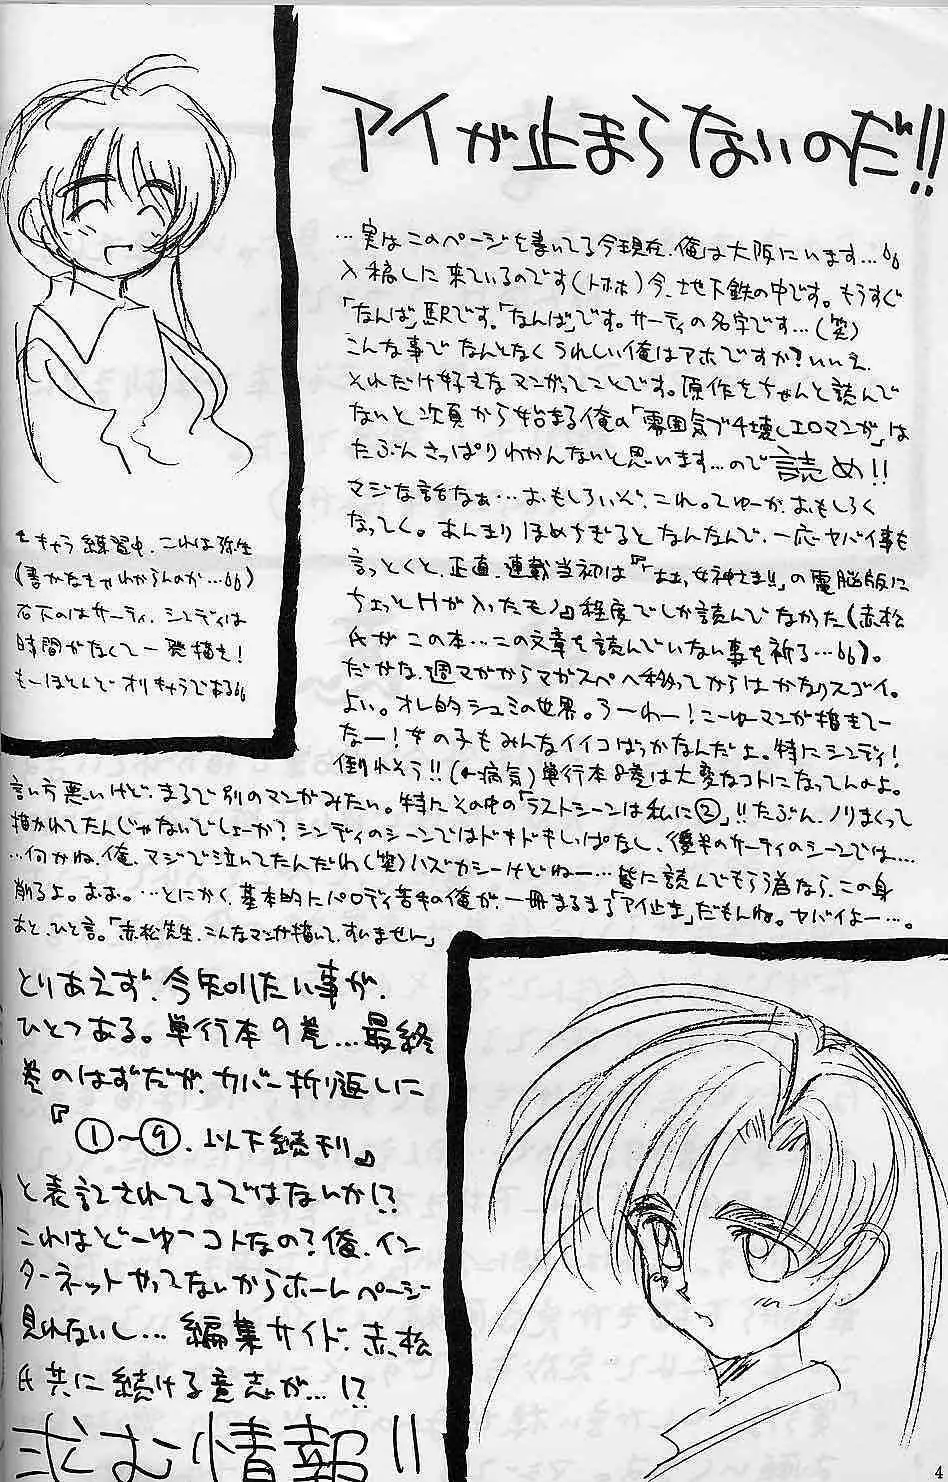 アイが止まらないのだ!!
…実はこのページを書いてる今現在、俺は大阪にいます…
入稿しに来ているのです(トホホ)今、地下鉄の中です。もうすぐ
「なんば」駅です。「なんば」です。サーティの名字です…(笑)
こんな事でなんとなくうれしい俺はアホですか?いいえ、
それだけ好きなマンガってことです。原作をちゃんと読んで
ないと次頁から始まる俺の「雰囲気ブチ壊しエロマンガ」は
たぶんさっぱりわかんないと思います…ので読め!!
マジな話なぁ…おもしろいぞ、これ。てゆーか、おもしろく
なってく。あんまりほめちぎるとなんなんで、一応ヤバイ事も
言っとくと、正直、連載当初は『「ああっ女神さまっ!!」の電脳版に
ちょっとHが入ったモノ』程度でしか読んでなかった(赤松
氏がこの本…この文章を読んでいない事を祈る…)。
だがな、週マガからマガスペへ移ってからはかなりスゴイ。
よい。オレ的シュミの世界。うーわー!こーゆーマンガ描きてー
なー!女の子もみんなイイコばっかなんだよ。特にシンディ!
倒れそう!!(←病気)単行本8巻は大変なコトになってんのよ。
言い方悪いけど、まるで別のマンガみたい。特にその中の「ラストシーンは私に②」!!たぶん、ノリまくって
描かれてたんじゃないでしょーか?シンディのシーンではドキドキしっぱなし、後半のサーティのシーンでは…
…何かね、俺、マジで泣いてたんだわ(笑)ハズカシーけどねー…皆に読んでもらう為なら、この身
削るよ。おぉ。…とにかく、基本的にパロディ苦手の俺が、一冊まるまる「アイ止ま」だもんね。ヤバイよー…。
あと、ひと言。「赤松先生、こんなマンガ描いて、すいません」
←キャラ練習中、これは弥生
(書かなきゃわからんのか…)
右下のはサーティ、シンディは
時間がなくて一発描き!
もーほとんどオリキャラである
とりあえず、今知りたい事が、
ひとつある。単行本9巻…最終
巻のはずだが、カバー折り返しに
『①〜⑨、以下続刊』
と表記されてるではないか!?
これはどーゆーコトなの?俺、イン
ターネットやってないからホームページ
見れないし…編集サイド、赤松
氏共に続ける意志が…!?
求む情報!!
4